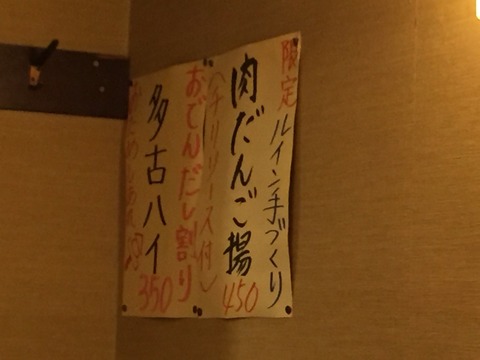 限定
ルイン手づくり
肉だんご揚
450
(チリソース付)
おでんだし割り
多古ハイ
350